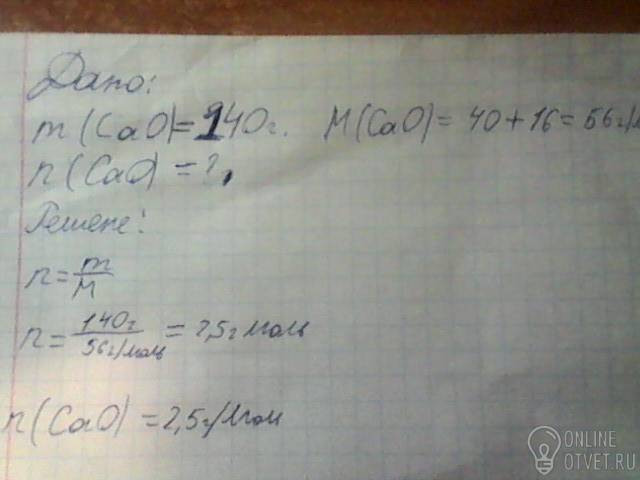 Дано:
m(CaO)=140г. M(CaO)=40+16=56г/м
n(CaO)=?,
Решене:
n=m/M
n=140г/56г/моль=2,5г моль
n(CaO)=2,5г/мол
ONLINE
OTVET.RU